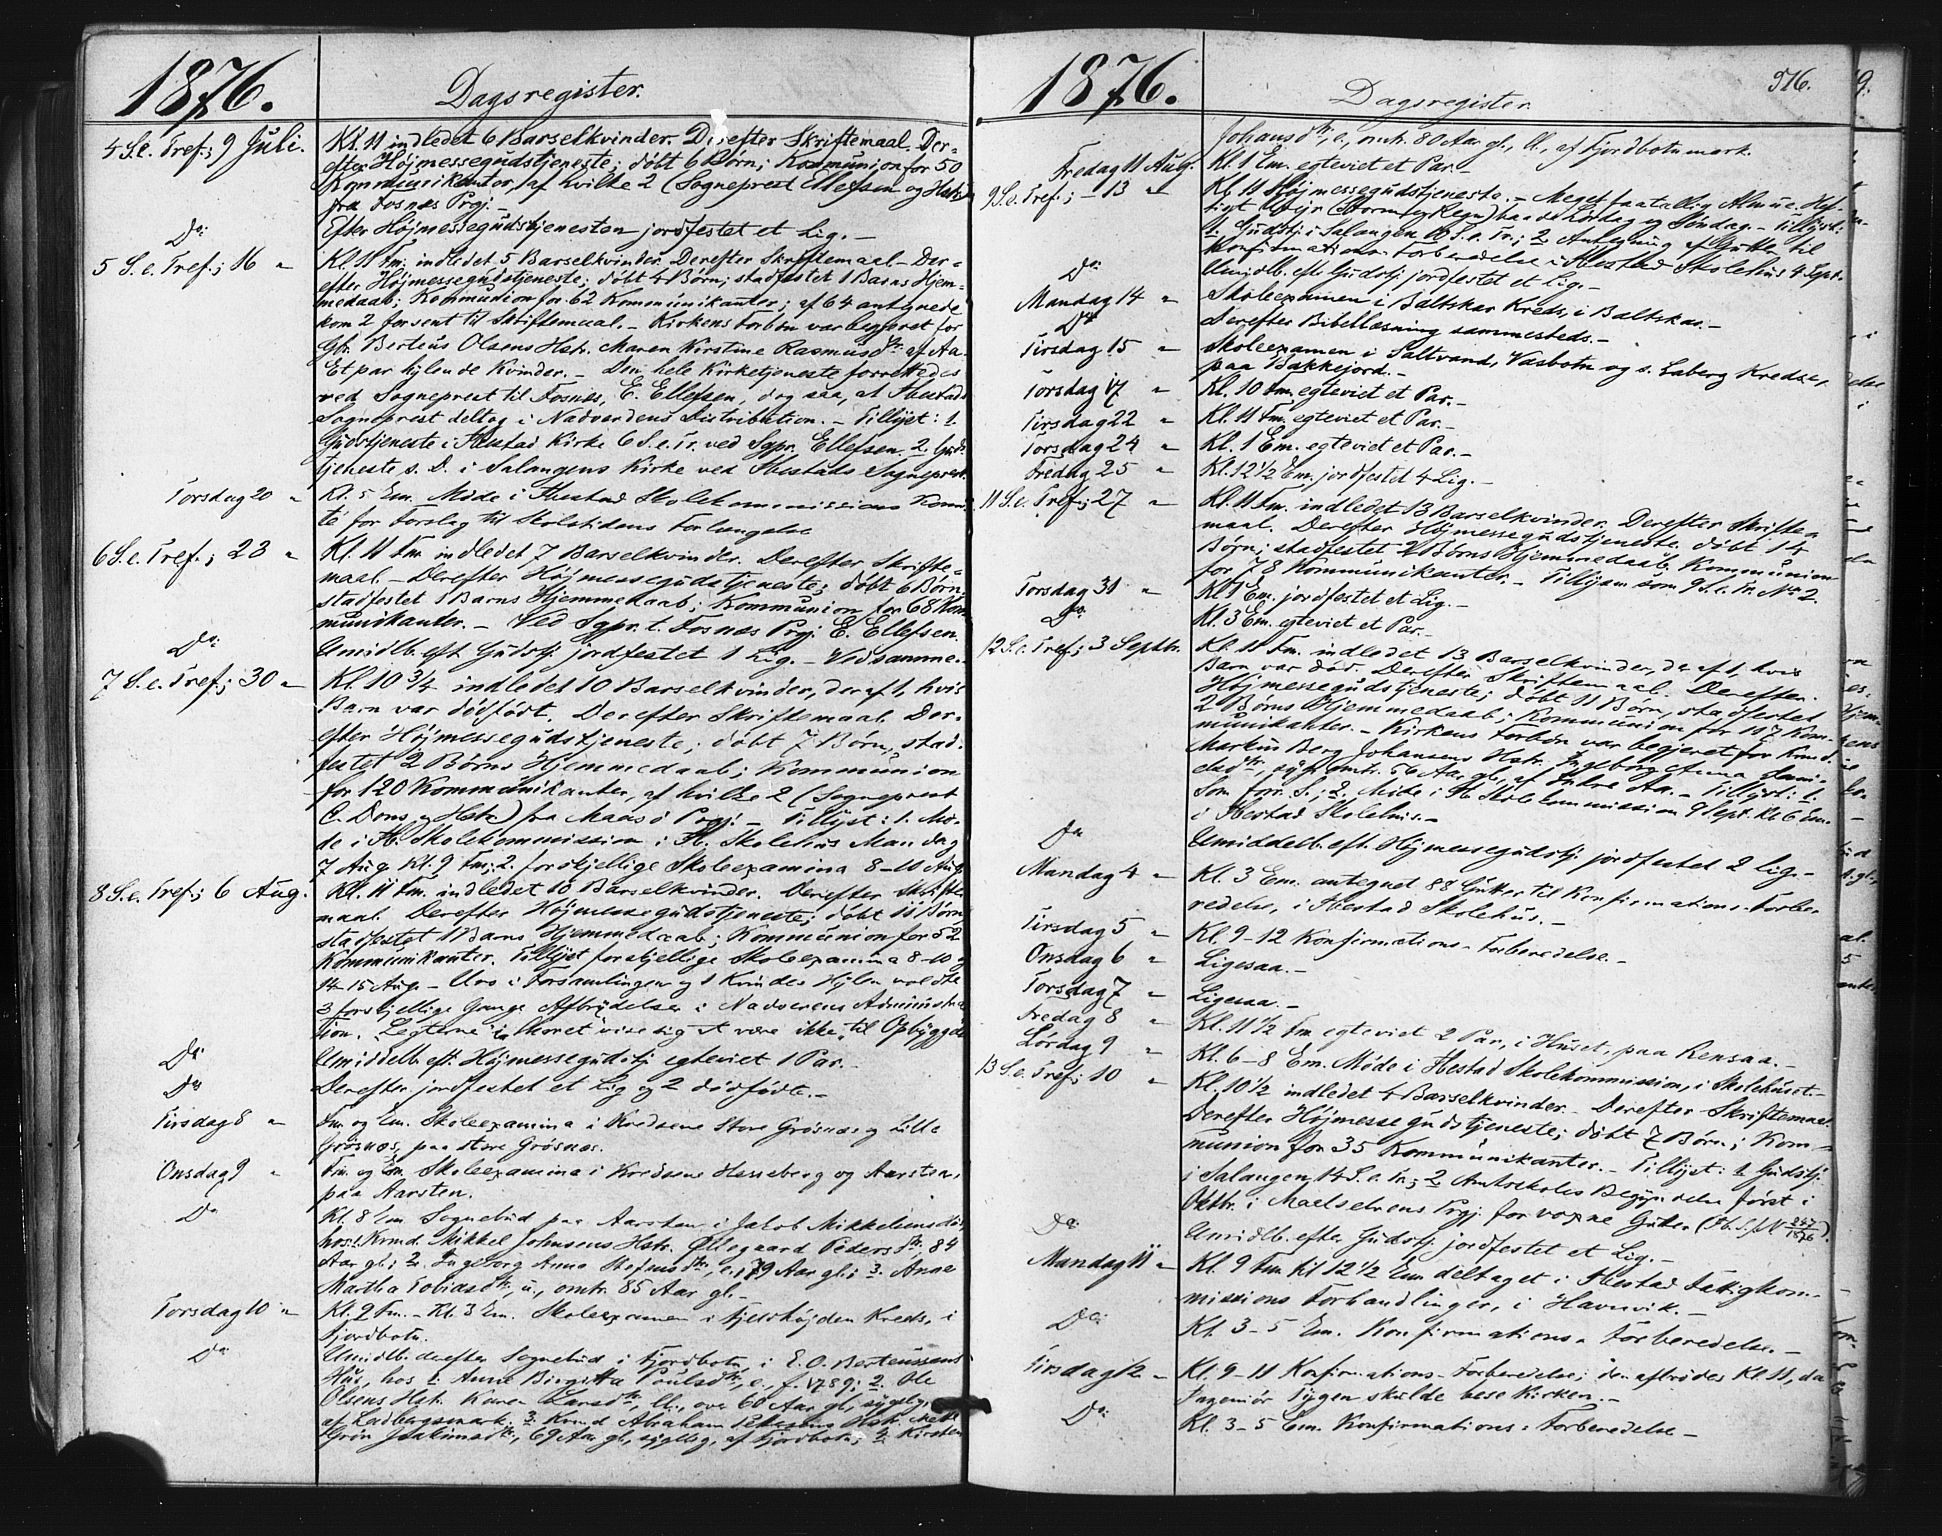 1876.
Dagsregister.
4 S.e. Tref.; 9 Juli. Kl. 11 indledet 6 Barselkvinder. Derefter Skriftemaal. Der-
efter Højmessegudstjeneste; døbt 6 Børn; Kommunion for 50
Kommunikanter, af hvilke 2 (Sogneprest Ellefsen og Hstr)
fra Fosnæs Prgj.
Do Efter Højmessegudstjenesten jordfestet et Lig. —
5 S.e. Tref.; 16 " Kl. 11 Fm. indledet 5 Barselkvinder. Derefter Skriftemaal. Der-
efter Højmessegudstjeneste; døbt 4 Børn; stadfestet 1 Barns Hjem-
medaab; Kommunion for 62 Kommunikanter; af 64 antegnede
kom 2 for sent til Skriftemaal. — Kirkens Forbøn var begjeret for
Gbr. Berteus Olsens Hstr. Maren Kirstine Rasmusdtr af Aa.
Et par hylende Kvinder. — Den hele Kirketjeneste forrettedes
ved Sogneprest til Fosnæs, E. Ellefsen, dog saa, at Ibestads
Sogneprest deltog i Nadverdens Distribution. — Tillyst: 1.
Gudstjeneste i Ibestad Kirke 6 S.e. Tr. ved Sgpr. Ellefsen. 2. Guds-
tjeneste s. D. i Salangens Kirke ved Ibestads Sogneprest.
Torsdag 20 " Kl. 5 Em. Møde i Ibestad Skolekommissions Komi-
té for Forslag til Skoletidens Forlængelse
6 S.e. Tref.; 23 " Kl. 11 Fm. indledet 7 Barselkvinder. Derefter Skrifte-
maal. — Derefter Højmessegudstjeneste; døbt 6 Børn,
stadfestet 1 Barns Hjemmedaab; Kommunion for 68 Kom-
munikanter. — Ved Sgpr. t. Fosnæs Prgj. E. Ellefsen.
Do Umidlb. eft. Gudstj. jordfestet 1 Lig. — Ved samme. —
7 S.e. Tref.; 30 " Kl. 10 3/4 indledet 10 Barselkvinder, deraf 1, hvis
Barn var dødfødt. Derefter Skriftemaal. Der-
efter Højmessegudstjeneste; døbt 7 Børn, stad-
festet 2 Børns Hjemmedaab; Kommunion
for 120 Kommunikanter, af hvilke 2 (Sogneprest
C. Dons og Hstr) fra Maasø Prgj. — Tillyst: 1. Mø-
de i Ib. Skolekommission i Ib. Skolehus Mandag
7 Aug. Kl. 9 Fm.; 2. forskjellige Skoleexamina 8–10 Aug.
8 S.e. Tref.; 6 Aug. Kl. 11 Fm. indledet 10 Barselkvinder. Derefter Skrifte-
maal. Derefter Højmessegudstjeneste; døbt 11 Børn;
stadfestet 1 Barns Hjemmedaab; Kommunion for 52
Kommunikanter. Tillyst forskjellige Skoleexamina 8–10 og
14–15 Aug. — Uro i Forsamlingen og 1 Kvindes Hylen voldte
3 forskjellige Gange Afbrydelse i Nadverens Administra-
tion. Legterne i Koret viser sig at være ikke til Opbyggelse
Do Umiddelb. eft. Højmessegudstj. egteviet 1 Par. —
Do Derefter jordfestet et Lig og 2 dødfødte. —
Tirsdag 8 " Fm. og Em. Skoleexamina i Kredsene Store Grøsnæs og Lille
Grøsnæs, paa store Grøsnæs.
Onsdag 9 " Fm. og Em. Skoleexamina i Kredsene Hesseberg og Aarsten,
paa Aarsten.
Do Kl. 8 Em. Sognebud paa Aarsten i Jakob Mikkelsens Hus
hos 1. Krmd. Mikkel Johnsens Hstr. Øllegaard Pedersdtr, 84
Aar gl.; 2. Ingeborg Anna 79 Aar gl.; 3. Anne
Martha Tobiasdtr, u., omtr. 85 Aar gl. —
Torsdag 10 " Kl. 9 Fm. – Kl. 3 Em. Skoleexamen i Fjeldhøjden Kreds, i
Fjordbotn.
Do Umidlb. derefter Sognebud i Fjordbotn, i E. O. Berteussens
Hus, hos 1. Anne Birgitta Poulsdtr, e., f. 1789; 2. Ole
Olsens Hstr. Karen Larsdtr, Ib., over 60 Aar gl., sygelig,
af Ladbergsmark; 3. Krmd. Abraham Hstr. Mette
Grøn Joakimsdtr, 69 Aar gl., sygelig, af Fjordbotn; 4. Kirsten
1876.
Dagsregister.
516.
Johansdtr, e., omtr. 80 Aar gl., Ib., af Fjordbotnmark.
Fredag 11 Aug. Kl. 1 Em. egteviet et Par. —
9 S.e. Tref.; 13 " Kl. 11 Højmessegudstjeneste. — Meget faatallig Almue. Hef-
tigt Vejr (Storm og Regn) baade Lørdag og Søndag. — Tillyst:
1. Gudstj. i Salangen 10 S.e. Tr.; 2. Antegning af Gutter til
Konfirmations-Forberedelse i Ibestad Skolehus 4 Sept.
Do Umidlb. eft. Gudstj. jordfestet et Lig. —
Mandag 14 " Skoleexamen i Baltskar Kreds, i Baltskar. —
Do Derefter Bibellæsning sammesteds. —
Tirsdag 15 " Skoleexamen i Saltvand, Vasbotn og s. Laberg Kredse,
paa Bakkejord. —
Torsdag 17 " Kl. 10 Fm. egteviet et Par. —
Tirsdag 22 " Kl. 11 Fm. egteviet et Par. —
Torsdag 24 " Kl. 1 Em. egteviet et Par. —
Fredag 25 " Kl. 12 1/2 Em. jordfestet 4 Lig. —
11 S.e. Tref.; 27 " Kl. 11 Fm. indledet 13 Barselkvinder. Derefter Skrifte-
maal. Derefter Højmessegudstjeneste. døbt 14
Børn; stadfestet 2 Børns Hjemmedaab. Kommunion
for 78 Kommunikanter. — Tillyst som 9 S.e. Tr. No 2.
Torsdag 31 " Kl. 1 Em. jordfestet et Lig. —
Do Kl. 3 Em. egteviet et Par. —
12 S.e. Tref.; 3 Septbr. Kl. 11 Fm. indledet 13 Barselkvinder, deraf 1, hvis
Barn var død. Derefter Skriftemaal. Derefter
Højmessegudstjeneste; døbt 11 Børn, stadfestet
2 Børns Hjemmedaab; Kommunion for 107 Kom-
munikanter. — Kirkens Forbøn var begjeret for Krmd.
Markus Berg Johansens Hstr. Ingeborg Anna Dani-
elsdtr, syg, omtr. 56 Aar gl., af Indre Aa. — Tillyst: 1.
Som forr. S.; 2. Møde i Ib. Skolekommission 9 Sept. Kl. 6 Em.
i Ibestad Skolehus. —
Do Umiddelb. eft. Højmessegudstj. jordfestet 2 Lig. —
Mandag 4 " Kl. 3 Em. antegnet 88 Gutter til Konfirmations-Forbe-
redelse, i Ibestad Skolehus. —
Tirsdag 5 " Kl. 9–12 Konfirmations-Forberedelse. —
Onsdag 6 " Ligesaa. —
Torsdag 7 " Ligesaa. —
Fredag 8 " Kl. 11 1/2 Fm. egteviet 2 Par, i Huset, paa Rensaa. —
Lørdag 9 " Kl. 6–8 Em. Møde i Ibestad Skolekommission, i Skolehuset. —
13 S.e. Tref.; 10 " Kl. 10 1/2 indledet 4 Barselkvinder. — Derefter Skriftemaal
Derefter Højmessegudstjeneste; døbt 7 Børn; Kom-
munion for 35 Kommunikanter. — Tillyst: 1. Gudstj.
i Salangen 14 S.e. Tr.; 2. Amtsskoles Begyndelse først i
Oktbr. i Maalselvens Prgj. for voxne Gutter (Ib. S.pl. N 247/1876).
Do Umidlb. efter Gudstj. jordfestet et Lig. —
Mandag 11 " Kl. 9 Fm. til 12 1/2 Em. deltaget i Ibestad Fattigkom-
missions Forhandlinger, i Havnvik. —
Do Kl. 3–5 Em. Konfirmations-Forberedelse. —
Tirsdag 12 " Kl. 9–11 Konfirmations-Forberedelse; den afbrødes Kl. 11, da
Ingeniør Tygen skulde bese Kirken. —
Do Kl. 3–5 Em. Konfirmations-Forberedelse —